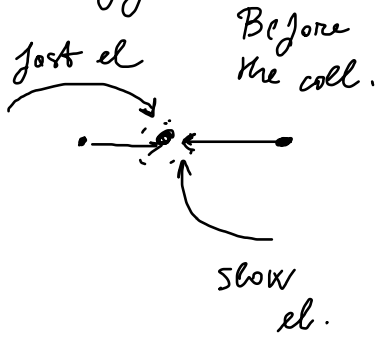 Before
the coll.
fast el
slow
el.